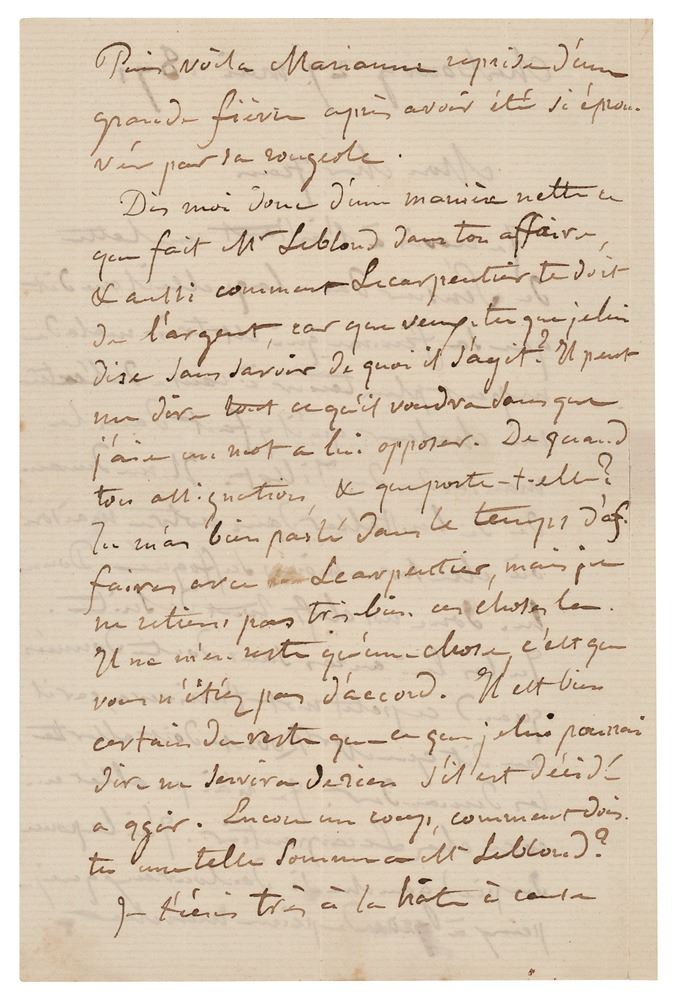 Puis voila Marianne reprise d'une
grande fièvre après avoir été si éprou-
vée par sa rougeole.
Dis moi donc d'une manière nette ce
que fait Mr Leblond dans ton affaire,
& aussi comment Lecarpentier te doit
de l'argent, car que veux-tu que je lui
dise sans savoir de quoi il s'agit? Il peut
me dire tout ce qu'il voudra sans que
j'aie un mot a lui opposer. De quand
ton assignation & que porte-t-elle?
Tu m'as bien parlé dans le temps d'af-
faires avec Lecarpentier, mais je
ne retiens pas très bien ces choses la.
Il ne m'en reste qu'une chose, c'est que
vous n'étiez pas d'accord. Il est bien
certain du reste que ce que je lui pourrai
dire ne servira de rien s'il est décidé
a agir. Encore un coup, comment dois-
tu une telle somme a Mr Leblond?
Je t'écris très à la hâte à cause